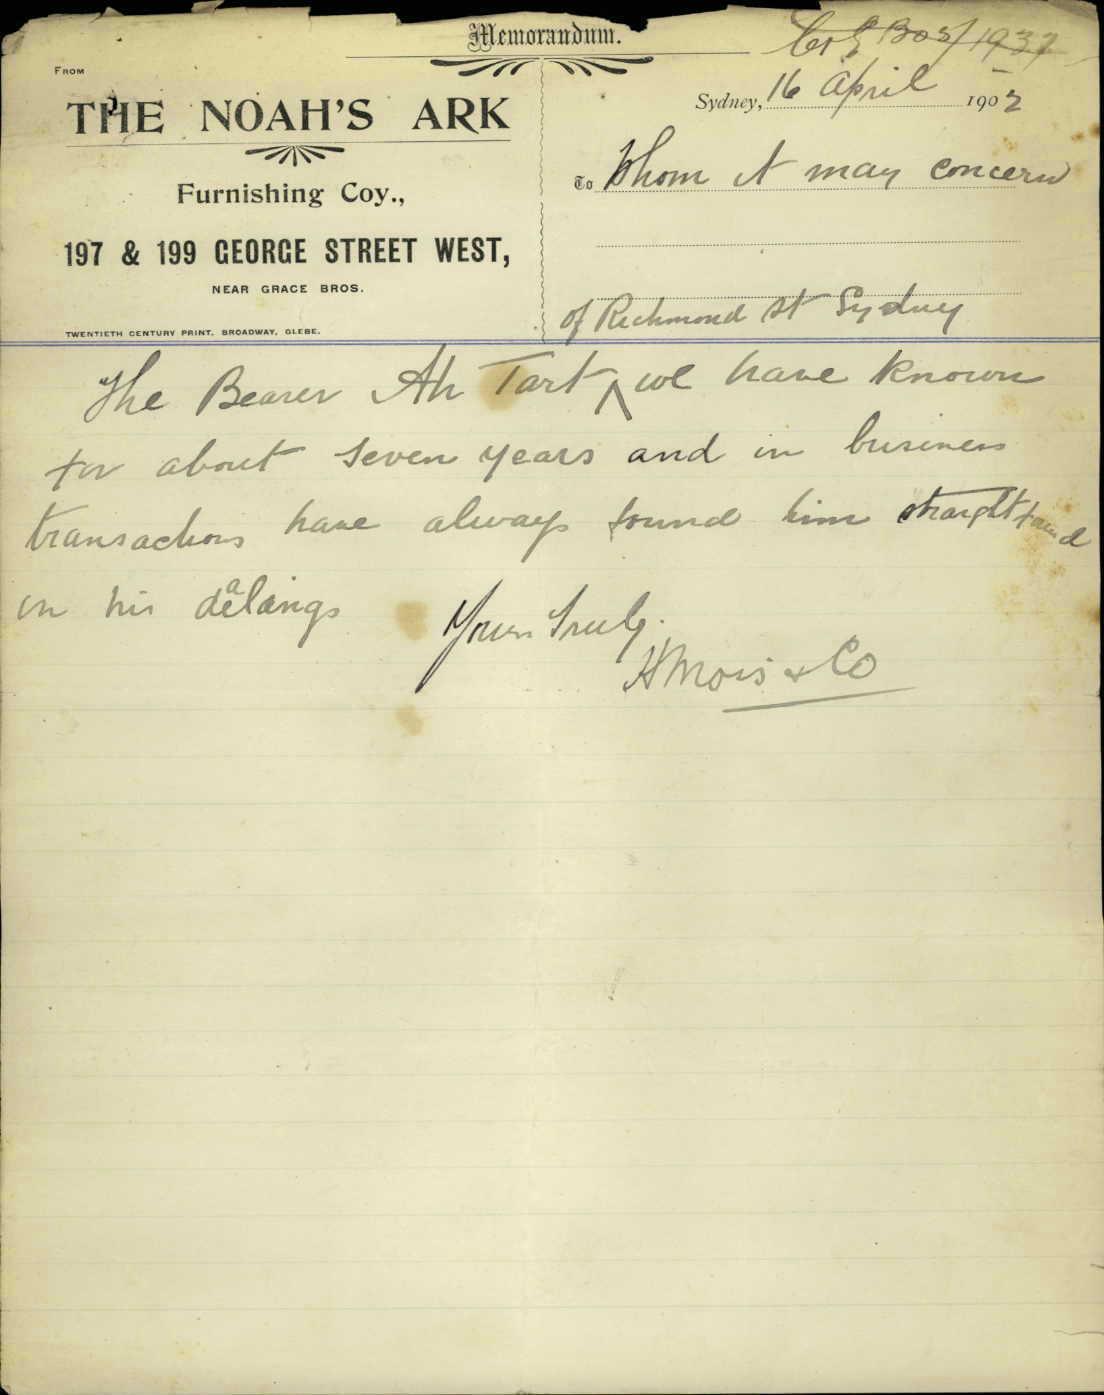 Memorandum.
FROM
THE NOAH'S ARK
Furnishing Coy.,
197 & 199 GEORGE STREET WEST,
NEAR GRACE BROS.
TWENTIETH CENTURY PRINT, BROADWAY, GLEBE.
1937
Sydney, 16 April 1902
To Whom it may concern
of Richmond St Sydney
The Bearer Ah Tart ^ we have known
for about seven years and in business
transactions have always found him straight
in his dealings
Yours Truly.
& Co